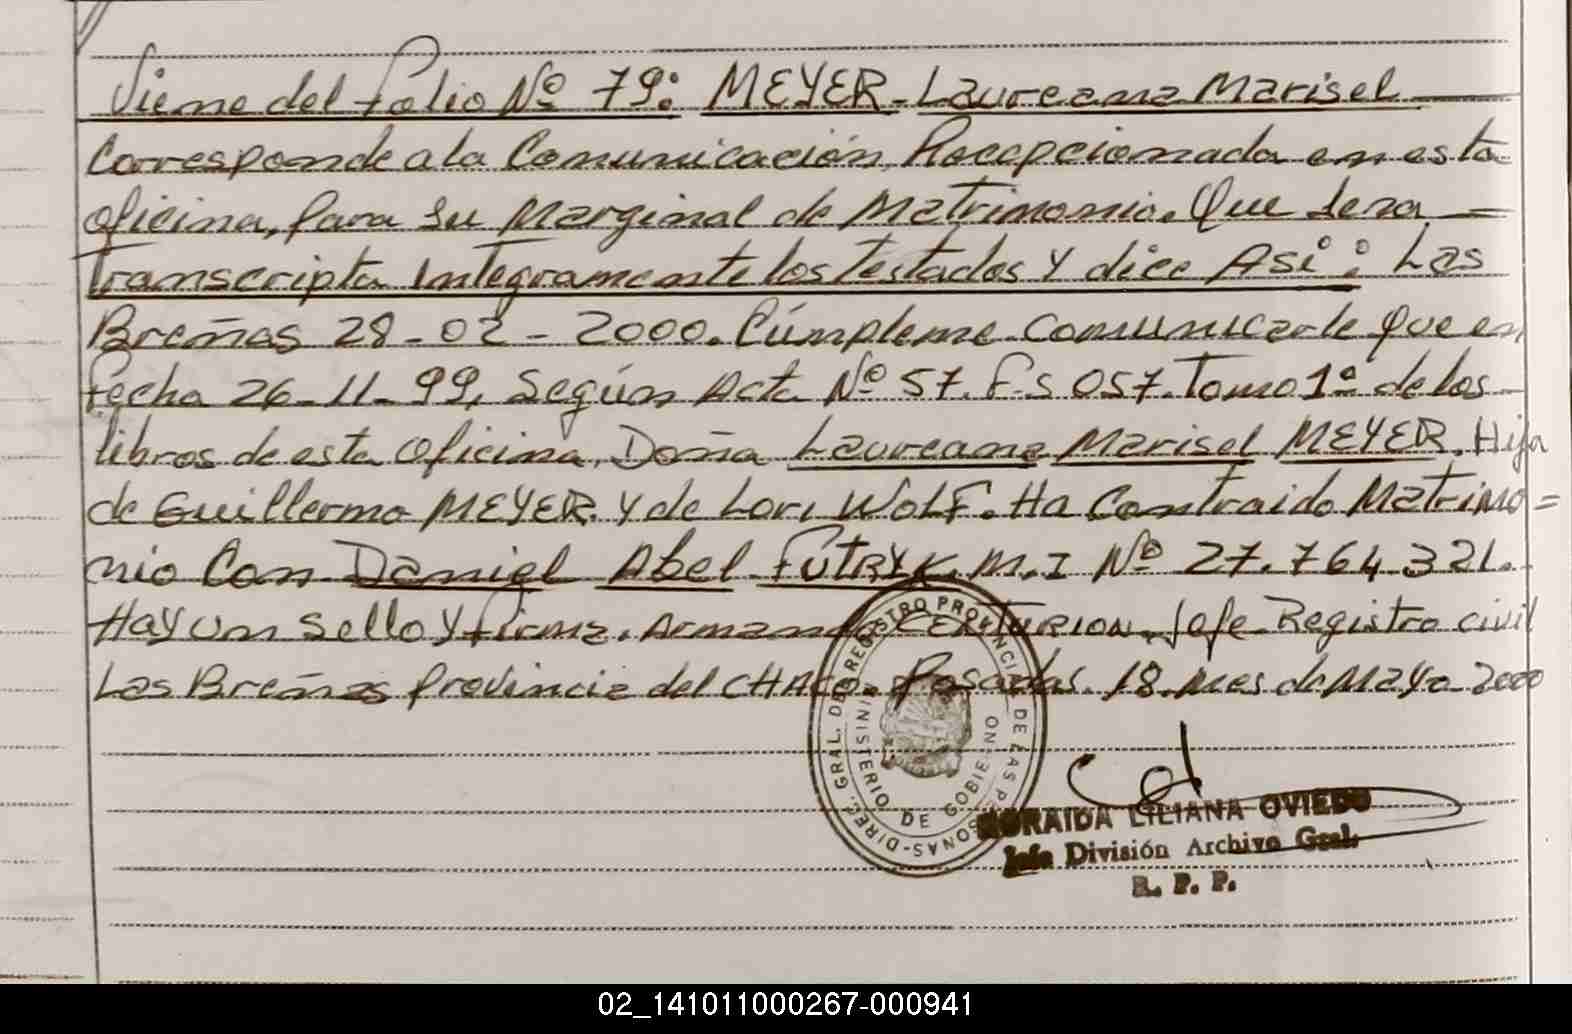 Viene del folio Nº 79: MEYER - Laureana Marisel
Corresponde a la Comunicación, Recepcionada en esta
oficina, para su Marginal de Matrimonio. Que sera =
transcripta Integramente los Testados Y dice Asi: Las
Breñas 28-02-2000. Cúmpleme comunicarle que en
fecha 26-11-99, Según Acta Nº 57. F-S 057. Tomo 1º de los
libros de esta oficina, Doña Laureana Marisel MEYER. Hija
de Guillermo MEYER. Y de Lori WOLF. Ha Contraido Matrimo=
nio Con Daniel Abel FUTRYK. M.I Nº 27.764.321.
Hay un sello Y firma. Armando CENTURION. Jefe Registro civil
Las Breñas Provincia del CHACO. Posadas. 18. mes de Mayo 2000
DIREC. GRAL. DE REGISTRO PROVINCIAL DE LAS PERSONAS
MINISTERIO DE GOBIERNO
NORAIDA LILIANA OVIEDO
Jefe División Archivo Gral.
R. P. P.
02_141011000267-000941